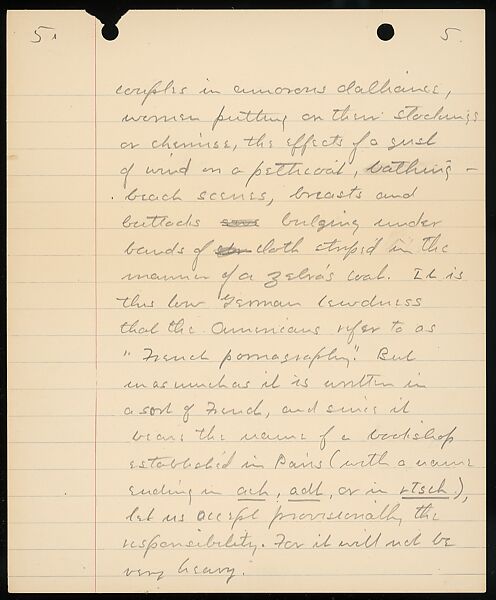 5.
5.
couples in amorous dalliance,
women putting on their stockings
or chemise, the effects of a gust
of wind on a petticoat, bathing-
beach scenes, breasts and
buttocks bulging under
bands of cloth striped in the
manner of a zebra's coat. It is
this low German lewdness
that the Americans refer to as
"French pornography." But
inasmuch as it is written in
a sort of French, and since it
bears the name of a bookshop
established in Paris (with a name
ending in ach, adt, or in itsch),
let us accept provisionally the
responsibility. For it will not be
very heavy.